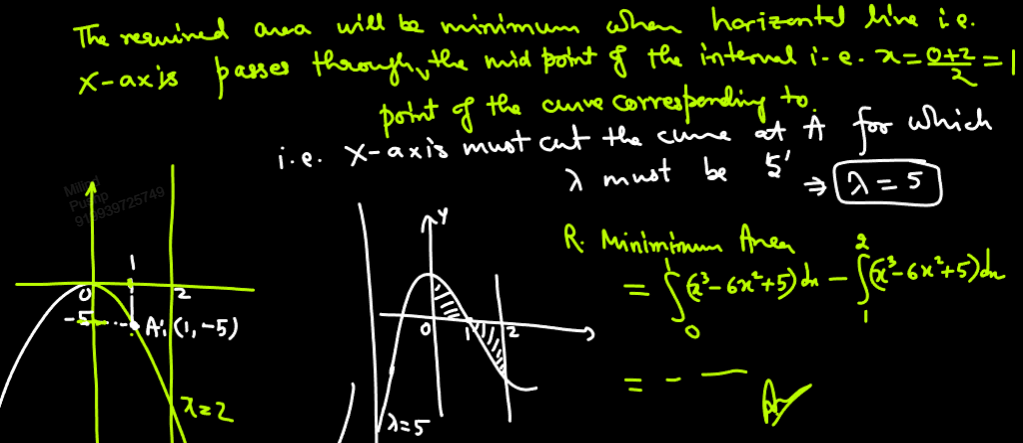 The required area will be minimum when horizontal line i.e.
X-axis passes through the mid point of the interval i.e. x = 0+2/2 = 1
point of the curve corresponding to.
i.e. X-axis must cut the curve at A for which
λ must be 5' ⇒ λ = 5
Milind
Pushp
919939725749
R. Minimimum Area
= ∫₀¹ (x³-6x²+5)dx - ∫₁² (x³-6x²+5)dx
= - —
1
0
2
-5
A:(1,-5)
x=2
Y
0
1
2
λ=5